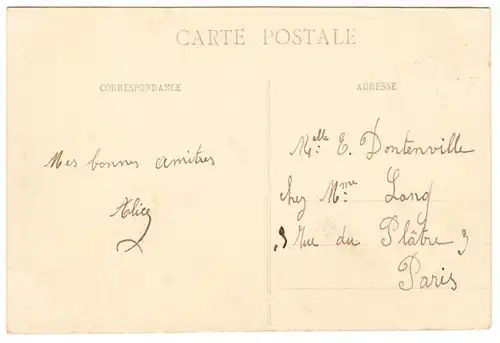 CARTE POSTALE
CORRESPONDANCE
Mes bonnes amitiés
Alice
ADRESSE
Melle E. Dontenville
chez Mme Lang
3 rue du Plâtre 3
Paris